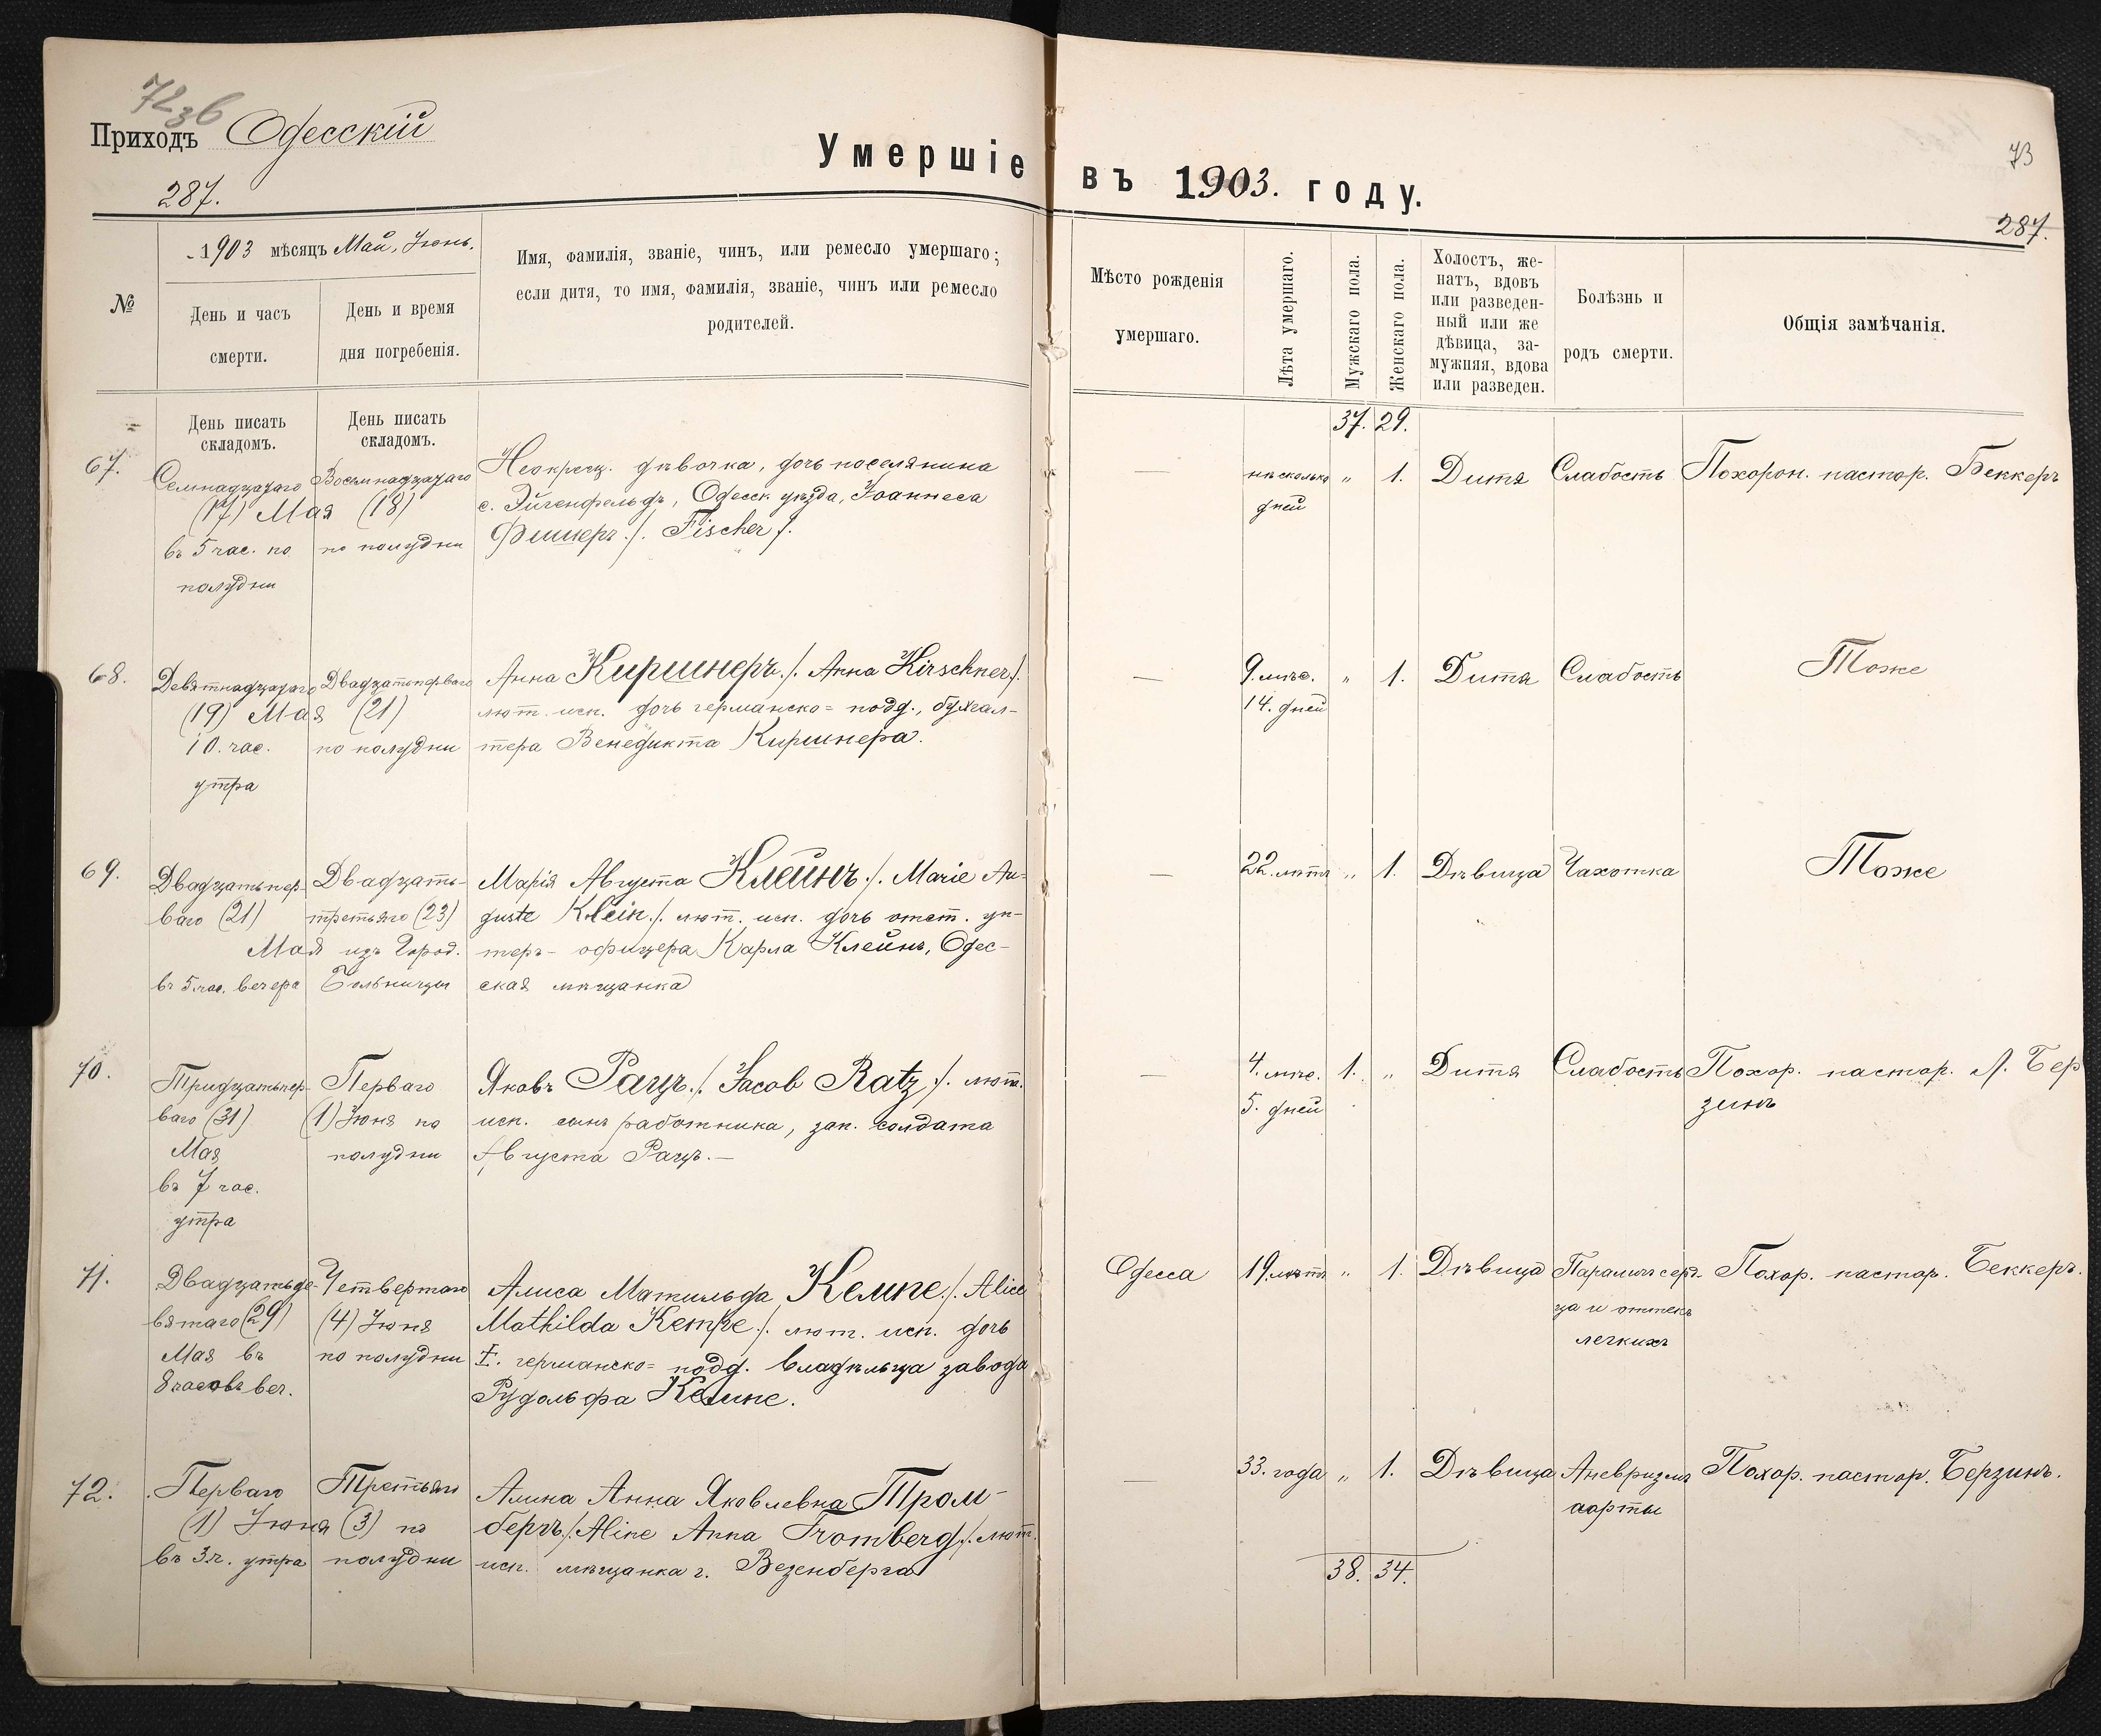 72 зб
Приходъ Одесскій
287.
Умершіе
въ 1903. году.
73
287.
№
1903 мѣсяцъ Май, Іюнь.
День и часъ
смерти.
День и время
дня погребенія.
Имя, фамилія, званіе, чинъ, или ремесло умершаго;
если дитя, то имя, фамилія, званіе, чинъ или ремесло
родителей.
Мѣсто рожденія
умершаго.
Лѣта умершаго.
Мужскаго пола.
Женскаго пола.
Холостъ, же-
натъ, вдовъ
или разведен-
ный или же
дѣвица, за-
мужняя, вдова
или разведен.
Болѣзнь и
родъ смерти.
Общія замѣчанія.
День писать
складомъ.
День писать
складомъ.
37. 29.
67.
Семнадцатаго
(17) Мая
въ 5 час. по
полудни
Восемнадцатаго
(18)
по полудни
Неокрещ. дѣвочка, дочь поселянина
с. Эйгенфельдъ, Одесск. уѣзда, Іоаннеса
Фишеръ ./. Fischer ./.
—
нѣсколько
дней
„ 1. Дитя Слабость Похорон. пастор. Беккеръ
68.
Девятнадцатаго
(19) Мая
10. час.
утра
Двадцатьперваго
(21)
по полудни
Анна Киршнеръ ./. Анна Kirschner ./.
лют. исп. дочь германско= подд., бухгал-
тера Венедикта Киршнера.
—
9. мѣс.
14. дней
„ 1. Дитя Слабость Тоже
69.
Двадцатьпер-
ваго (21)
Мая
въ 5 час. вечера
Двадцать-
третьяго (23)
изъ Город.
Больницы
Марія Августа Клейнъ ./. Marie Au-
guste Klein ./. лют. исп. дочь отст. ун-
теръ-офицера Карла Клейнъ, Одес-
ская мѣщанка
—
22. лѣтъ „ 1. Дѣвица Чахотка Тоже
70.
Тридцатьпер-
ваго (31)
Мая
въ 7 час.
утра
Перваго
(1) Іюня по
полудни
Яковъ Рацъ ./. Jacob Ratz ./. лют.
исп. сынъ работника, зап. солдата
Августа Рацъ. —
—
4. мѣс.
5. дней
1. „ Дитя Слабость Похор. пастор. Л. Бер
зинъ
71.
Двадцатьде-
вятаго (29)
Мая въ
8 часовъ веч.
Четвертаго
(4) Іюня
по полудни
Алиса Матильда Кемпе ./. Alice
Mathilda Kempe ./. лют. исп. дочь
†. германско= подд. владѣльца завода
Рудольфа Кемпе.
Одесса 19. лѣтъ „ 1. Дѣвица Параличъ серд-
ца и оттекъ
легкихъ
Похор. пастор. Беккеръ.
72.
Перваго
(1) Іюня
въ 3 ч. утра
Третьяго
(3) по
полудни
Алина Анна Яковлевна Тром-
бергъ ./. Aline Anna Tromberg ./. лют.
исп. мѣщанка г. Везенберга
—
33. года „ 1. Дѣвица Аневризма
аорты
Похор. пастор. Берзинъ.
38. 34.